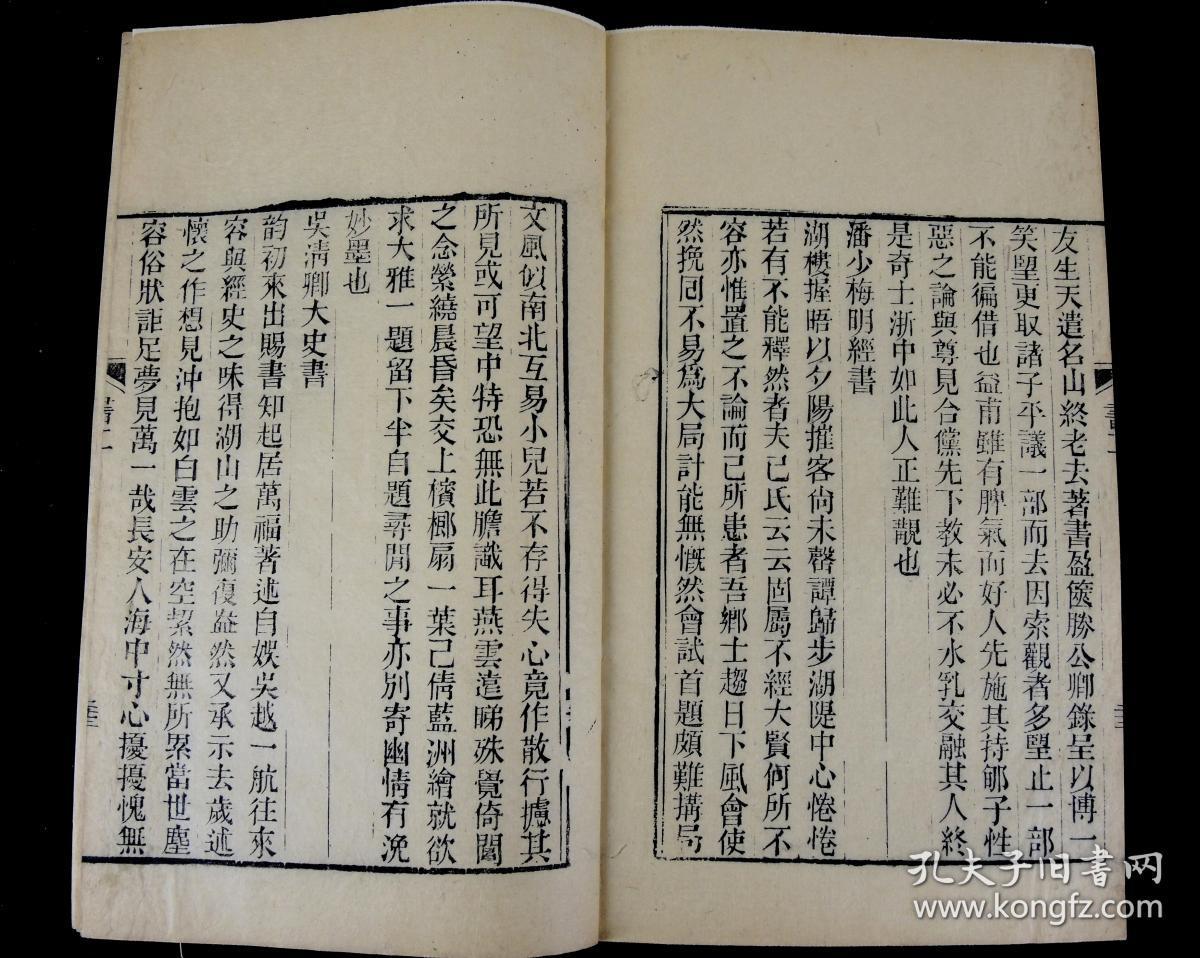 友生天遣名山終老去著書盈篋勝公卿錄呈以博一
笑朢更取諸子平議一部而去因索觀者多朢止一部
不能徧借也益甫雖有脾氣而好人先施其持郇子性
惡之論與尊見合儻先下教未必不水乳交融其人終
是奇士浙中如此人正難覯也
潘少梅明經書
湖樓握晤以夕陽摧客尙未罄譚歸步湖隄中心惓惓
若有不能釋然者夫己氏云云固屬不經大賢何所不
容亦惟置之不論而已所患者吾鄉士趨日下風會使
然挽回不易爲大局計能無慨然會試首題頗難搆局
文風似南北互易小兒若不存得失心竟作散行攄其
所見或可望中特恐無此膽識耳燕雲遙睇殊覺倚閭
之念縈繞晨昏矣交上檳榔扇一葉己倩藍洲繪就欲
求大雅一題留下半自題尋閒之事亦别寄幽情有浼
妙墨也
吳淸卿大史書
韵初來出賜書知起居萬福著述自娛吳越一航往來
容與經史之味得湖山之助彌復盎然又承示去歲述
懷之作想見沖抱如白雲之在空絜然無所累當世塵
容俗狀詎足夢見萬一哉長安人海中寸心擾擾愧無
書二
孔夫子旧书网
www.kongfz.com